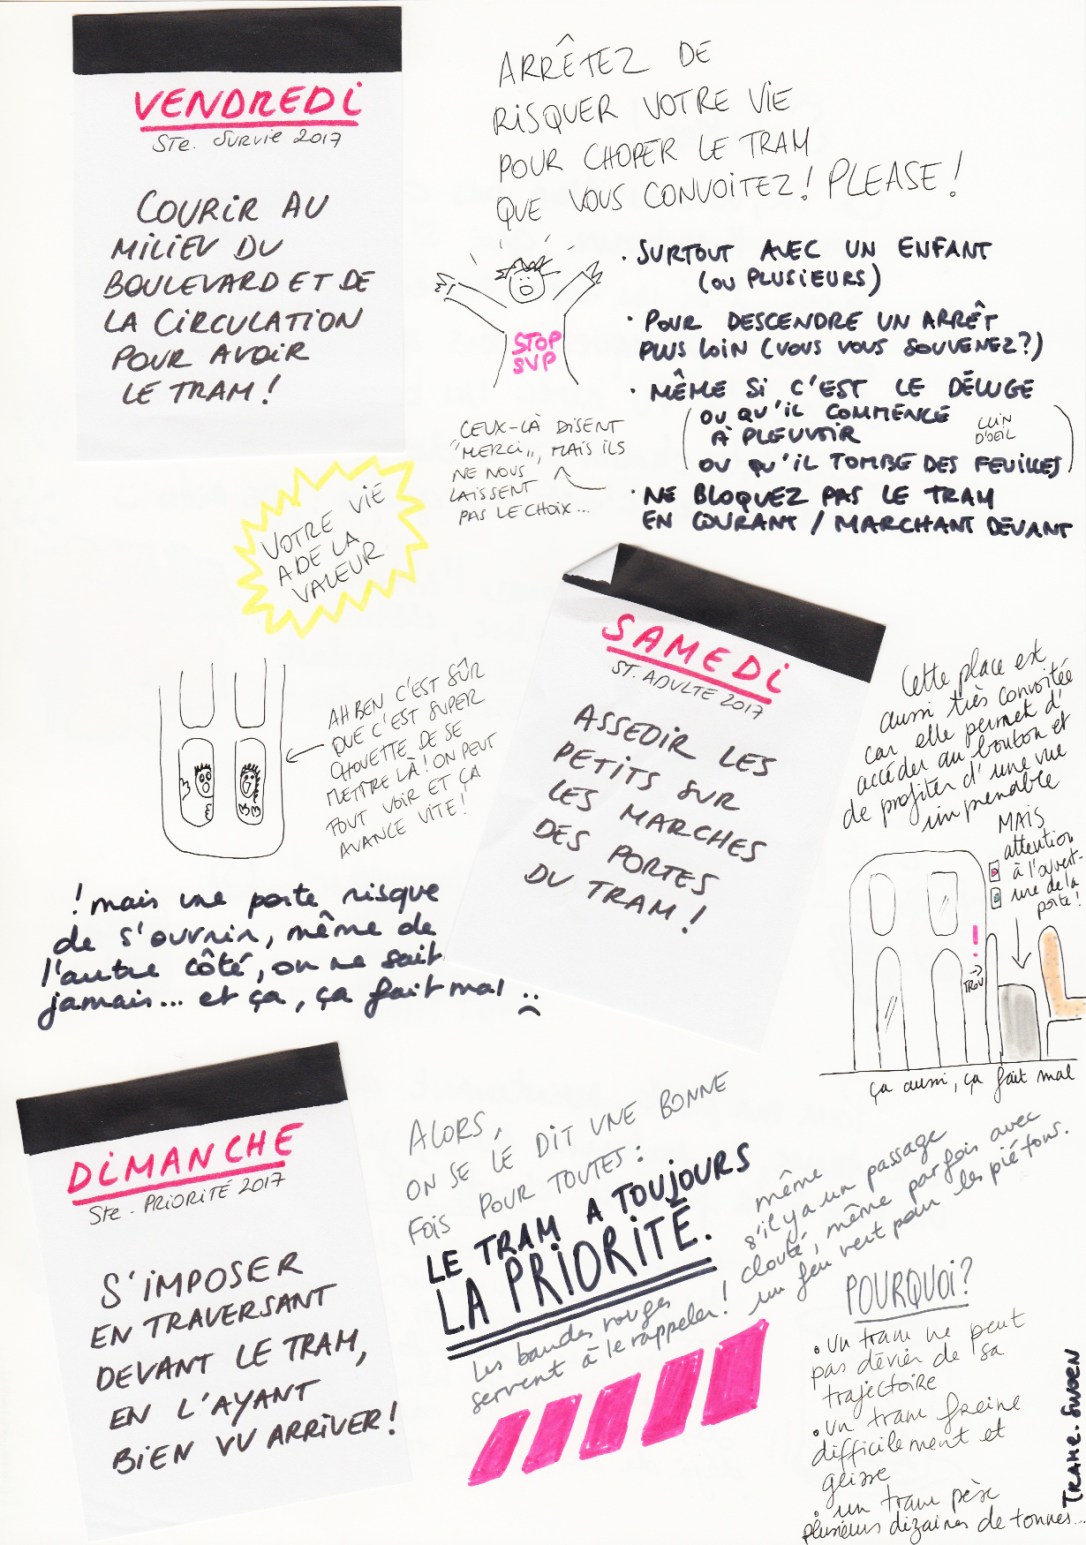 VENDREDI
Ste. SURVIE 2017
COURIR AU
MILIEU DU
BOULEVARD ET DE
LA CIRCULATION
POUR AVOIR
LE TRAM !
ARRÊTEZ DE
RISQUER VOTRE VIE
POUR CHOPER LE TRAM
QUE VOUS CONVOITEZ ! PLEASE !
STOP
SVP
• SURTOUT AVEC UN ENFANT
(OU PLUSIEURS)
• POUR DESCENDRE UN ARRÊT
PLUS LOIN (VOUS VOUS SOUVENEZ ?)
• MÊME SI C'EST LE DÉLUGE
(OU QU'IL COMMENCE
À PLEUVOIR
CLIN
D'OEIL
OU QU'IL TOMBE DES FEUILLES)
• NE BLOQUEZ PAS LE TRAM
EN COURANT / MARCHANT DEVANT
CEUX-LÀ DISENT
"MERCI", MAIS ILS
NE NOUS
LAISSENT
PAS LE CHOIX...
VOTRE VIE
A DE LA
VALEUR
SAMEDI
ST. ADULTE 2017
ASSEOIR LES
PETITS SUR
LES MARCHES
DES PORTES
DU TRAM !
AH BEN C'EST SÛR
QUE C'EST SUPER
CHOUETTE DE SE
METTRE LÀ ! ON PEUT
TOUT VOIR ET ÇA
AVANCE VITE !
! mais une porte risque
de s'ouvrir, même de
l'autre côté, on ne sait
jamais... et ça, ça fait mal :(
Cette place est
aussi très convoitée
car elle permet d'
accéder au bouton et
de profiter d'une vue
imprenable
MAIS
attention
à l'ouvert-
ure de la
porte !
!
TROU
ça aussi, ça fait mal
DIMANCHE
Ste. PRIORITÉ 2017
S'IMPOSER
EN TRAVERSANT
DEVANT LE TRAM,
EN L'AYANT
BIEN VU ARRIVER !
ALORS,
ON SE LE DIT UNE BONNE
FOIS POUR TOUTES :
LE TRAM A TOUJOURS
LA PRIORITÉ.
Les bandes rouges
servent à le rappeler !
même
s'il y a un passage
clouté, même parfois avec
un feu vert pour les piétons.
POURQUOI ?
• Un tram ne peut
pas dévier de sa
trajectoire
• Un tram freine
difficilement et
glisse
• un tram pèse
plusieurs dizaines de tonnes...